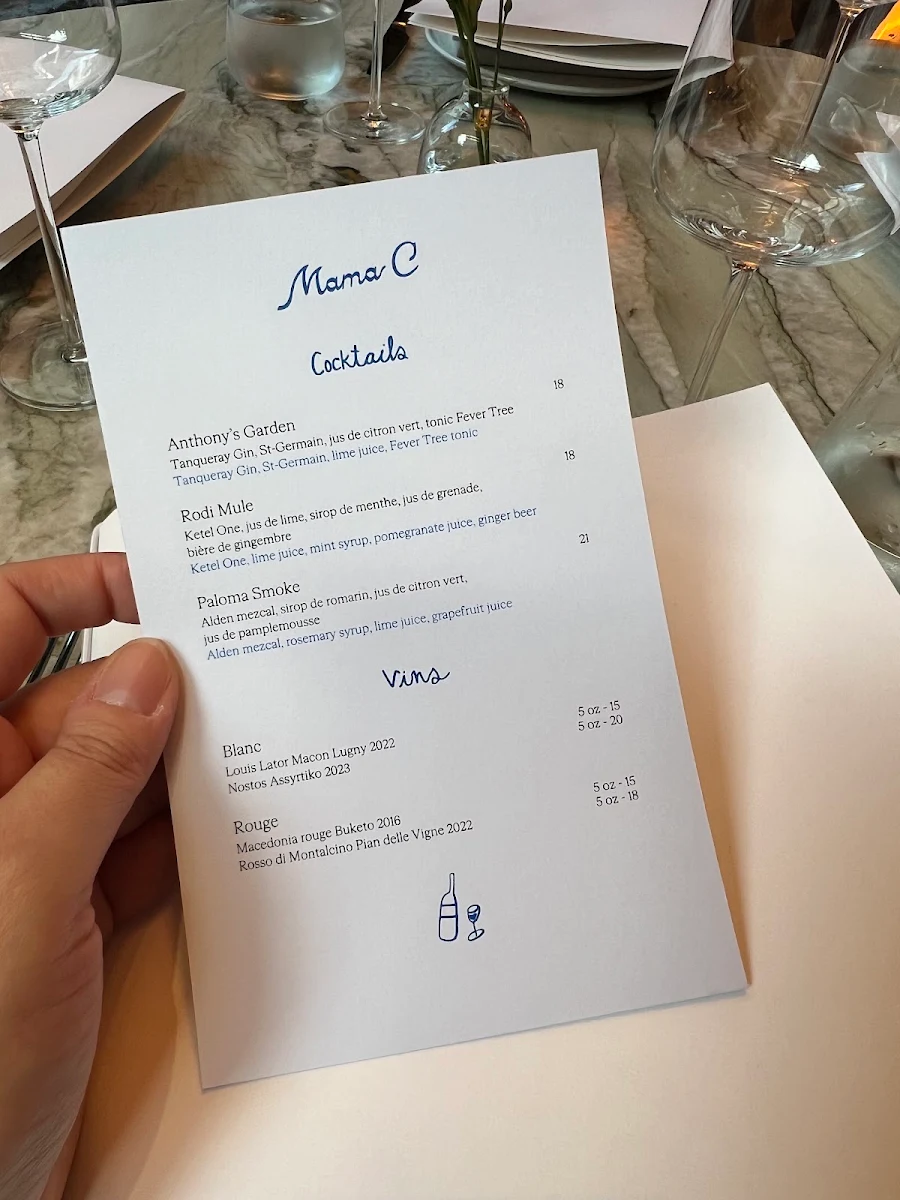 Mama C
Cocktails
18
Anthony's Garden
Tanqueray Gin, St-Germain, jus de citron vert, tonic Fever Tree
Tanqueray Gin, St-Germain, lime juice, Fever Tree tonic
18
Rodi Mule
Ketel One, jus de lime, sirop de menthe, jus de grenade,
bière de gingembre
Ketel One, lime juice, mint syrup, pomegranate juice, ginger beer
21
Paloma Smoke
Alden mezcal, sirop de romarin, jus de citron vert,
jus de pamplemousse
Alden mezcal, rosemary syrup, lime juice, grapefruit juice
Vins
Blanc
Louis Lator Macon Lugny 2022 5 oz - 15
Nostos Assyrtiko 2023 5 oz - 20
Rouge
Macedonia rouge Buketo 2016 5 oz - 15
Rosso di Montalcino Pian delle Vigne 2022 5 oz - 18